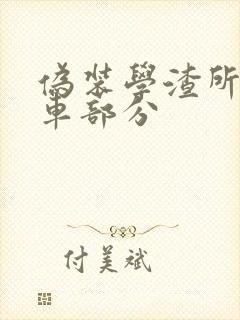 偽裝學渣所
車部分
付美斌